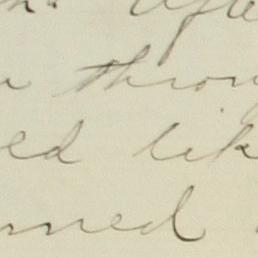 Afte
throu
ed lik
rned